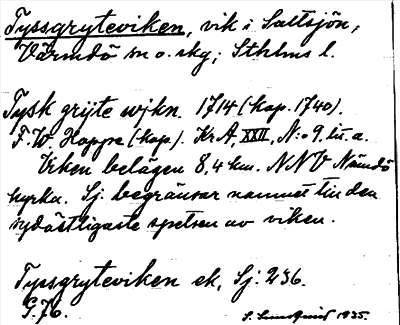 Tyssgryteviken, vik i Saltsjön,
Värmdö sn o. skg; Sthlms l.
Tysk grijte wjkn. 1714 (kop. 1740).
F. W. Hoppe (kop.). KrA, XXII, N:o 9 lit. a.
Viken belägen 8,4 km. NNV Nämdö
kyrka. Sj. begränsar namnet till den
sydöstligaste spetsen av viken.
Tyssgryteviken ek, Sj. 236.
G. 76.
S. 1935.